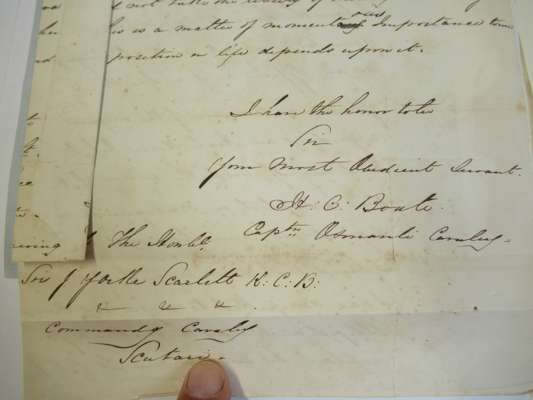 not take the
is a matter of momentous Importance to me
position in life depends upon it.
I have the honor to be
Sir
Your Most Obedient Servant
H. C. Boate
Captn Osmanli Cavalry
The Honble
Sir J Yorke Scarlett K: C: B:
Commandg Cavalry
Scutari.